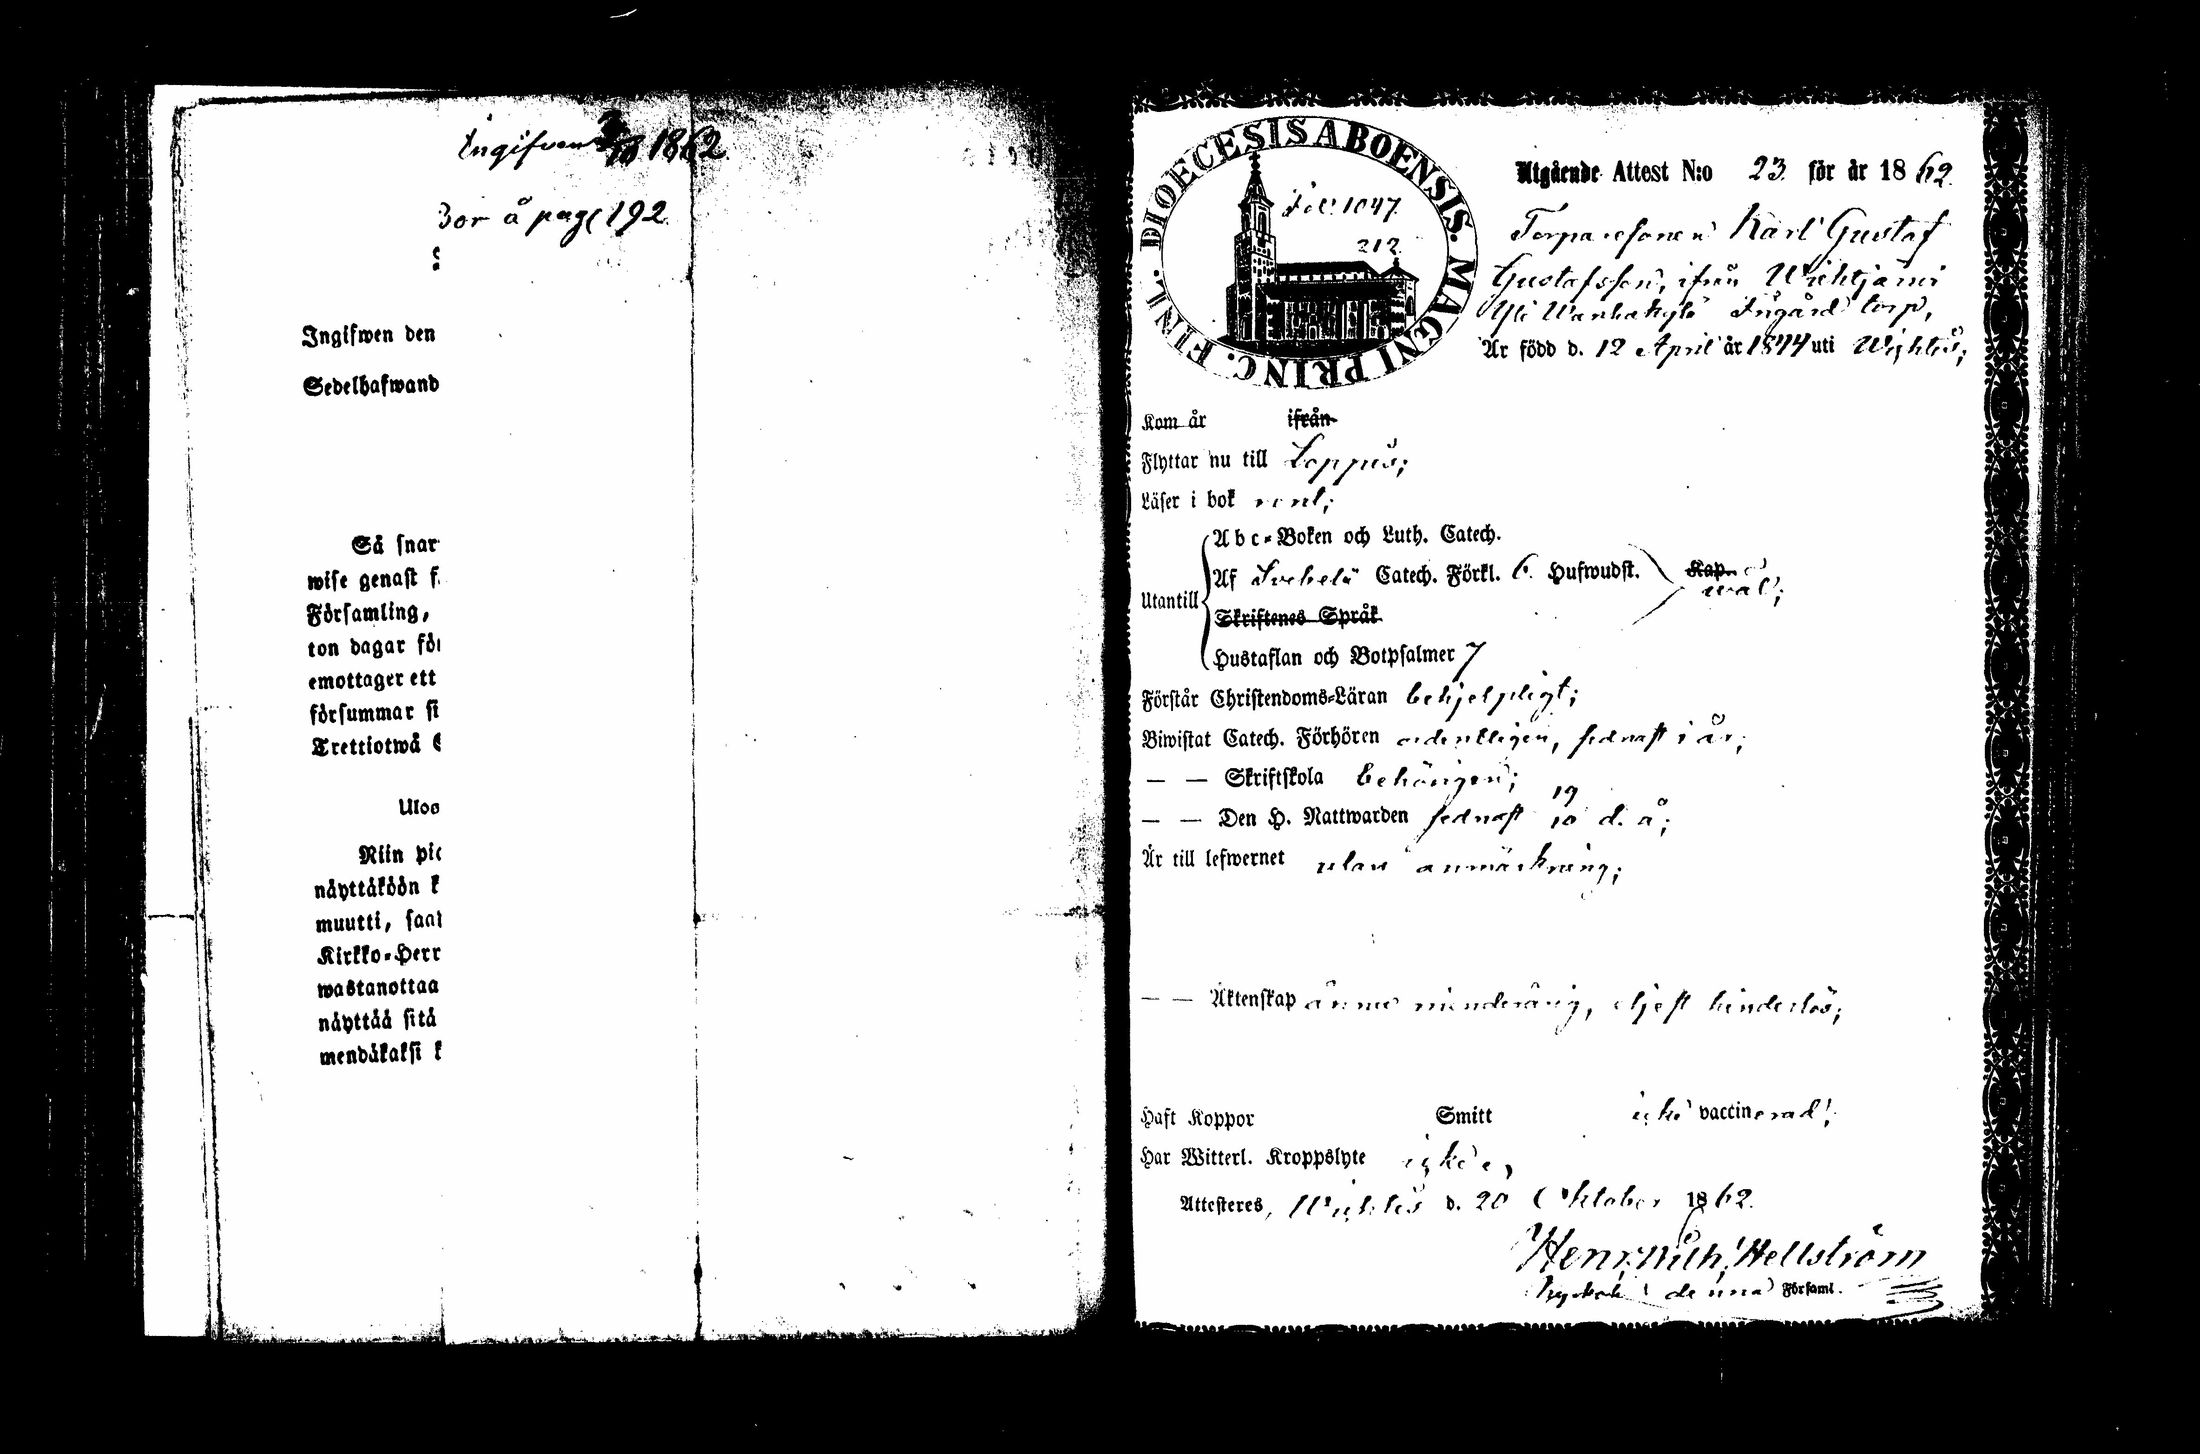 Ingifven 1862.
Bor å page 192
Ingifwen den
Sedelhafwand
Så snar
wise genast f
Församling,
ton dagar för
emottager ett
försummar si
Trettiotwå
Uloo
Niin pic
näyttäköön k
muutti, saat
Kirkko-Herr
wastanottaa
näyttää sitä
mendäkaksi k
DIOECESIS ABOENSIS. MAGNI PRINC. FINL.
Fol. 1047.
212.
Utgående Attest N:o 23 för år 1862.
Torparesonen Karl Gustaf
Gustafsson, ifrån
Yli Wanhakylä Ingård torp,
Är född d. 12 April år 1844 uti Wichtis;
Kom år ifrån
Flyttar nu till Loppis;
Läser i bok rent;
Utantill
Abc-Boken och Luth. Catech.
Af Svebelii Catech. Förkl. 6. Hufwudst. Kap.
wäl;
Skriftenes Språk
Hustaflan och Botpsalmer 7
Förstår Christendoms-Läran behjelpligt;
Biwistat Catech. Förhören ordentligen, sednast i år;
— — Skriftskola behörigen;
— — Den H. Nattwarden sednast 19/10 d. å;
Är till lefwernet utan anmärkning;
— — Äktenskap ännu minderårig, eljest hinderlös;
Haft Koppor Smitt icke vaccinerad;
Har Witterl. Kroppslyte icke,
Attesteres, Wichtis d. 20 Oktober 1862.
Hellström
denna Församl.